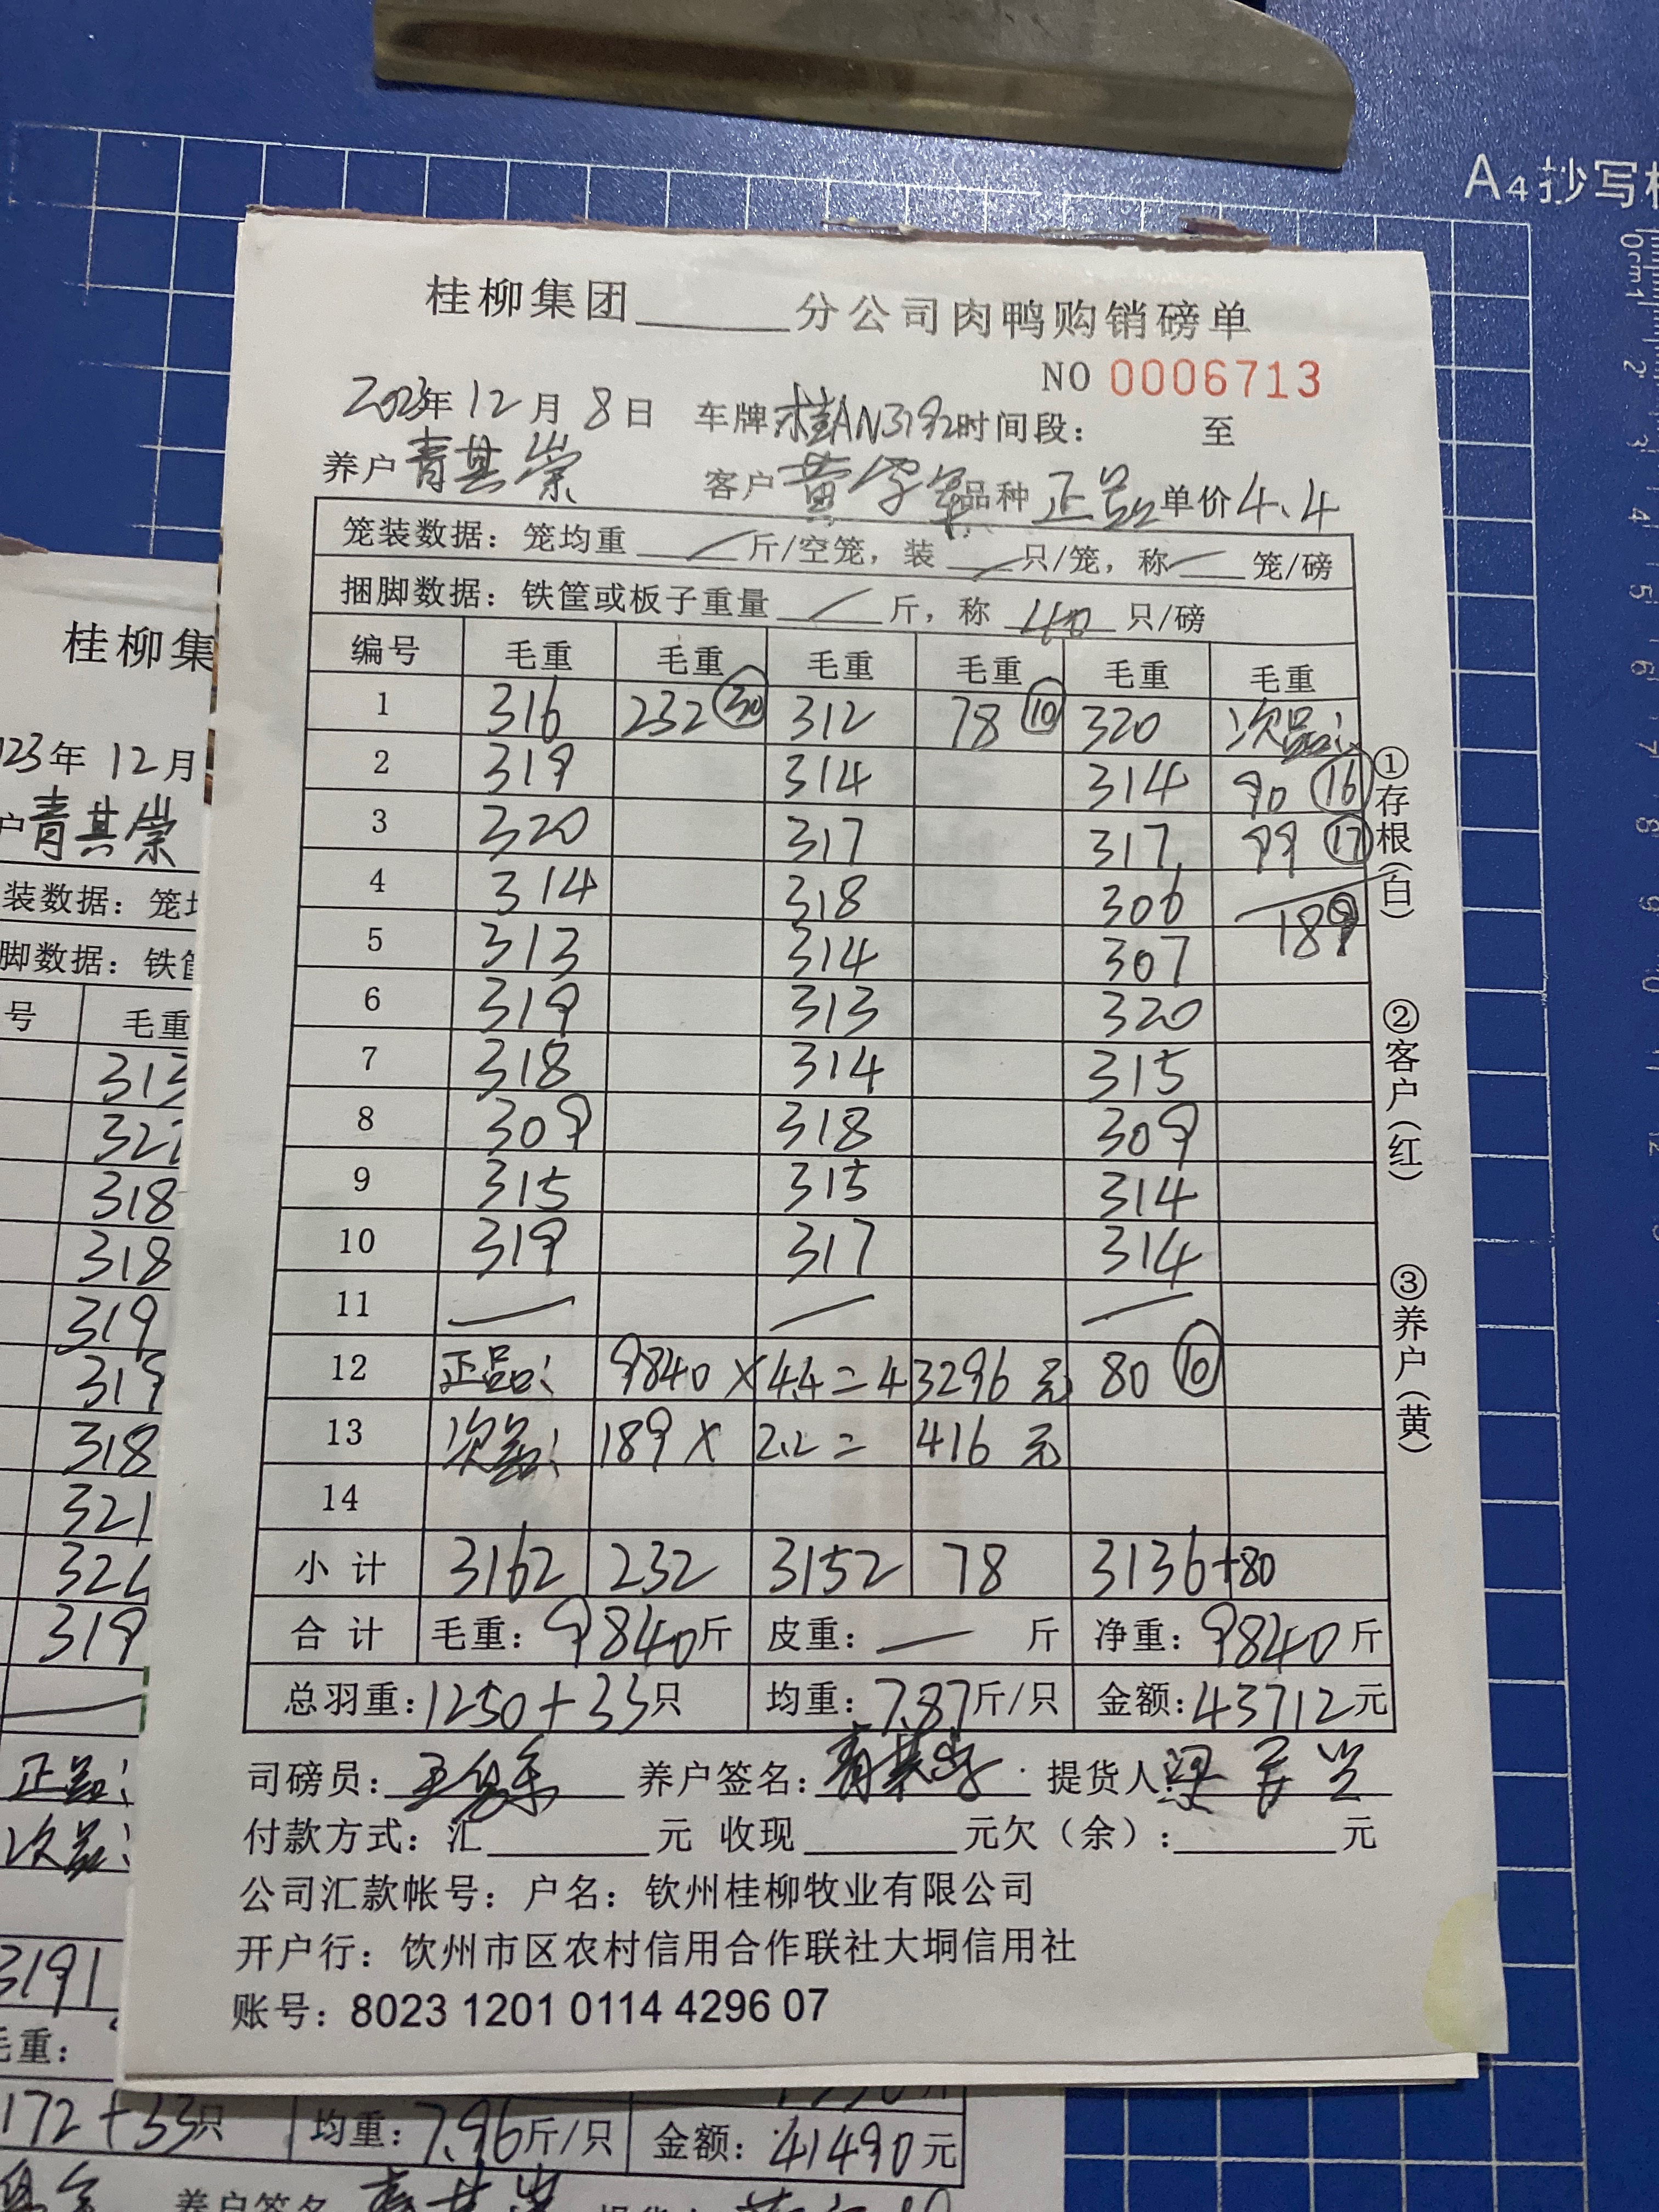 A4抄写板
0cm1
2
3
4
5
6
7
8
9
10
11
12
桂柳集团______分公司肉鸭购销磅单
NO 0006713
2023年12月8日 车牌桂AN3192时间段: 至
养户青其崇 客户黄字军品种正品单价4.4
笼装数据:笼均重 / 斤/空笼,装 / 只/笼,称 / 笼/磅
捆脚数据:铁筐或板子重量 / 斤,称 40 只/磅
编号 毛重 毛重 毛重 毛重 毛重 毛重
1 316 232 30 312 78 10 320 次品:
2 319 314 314 90 16
3 320 317 317 99 17
4 314 318 306 189
5 313 314 307
6 319 313 320
7 318 314 315
8 309 318 309
9 315 315 314
10 319 317 314
11 — — —
12 正品: 9840×4.4=43296元 80 10
13 次品: 189×2.2=416元
14
小计 3162 232 3152 78 3136+80
合计 毛重:9840斤 皮重:—斤 净重:9840斤
总羽重:1250+33只 均重:7.87斤/只 金额:43712元
司磅员: 养户签名:青其崇 提货人:
付款方式:汇______元 收现______元欠(余):______元
公司汇款帐号:户名:钦州桂柳牧业有限公司
开户行:饮州市区农村信用合作联社大垌信用社
账号:8023 1201 0114 4296 07
①存根(白)
②客户(红)
③养户(黄)
桂柳集
023年12月
户青其崇
装数据:笼均
脚数据:铁筐
号 毛重
313
318
318
319
319
318
321
319
正品:
次品:
3191
毛重:
172+33只 均重:7.96斤/只 金额:41490元
养户签名